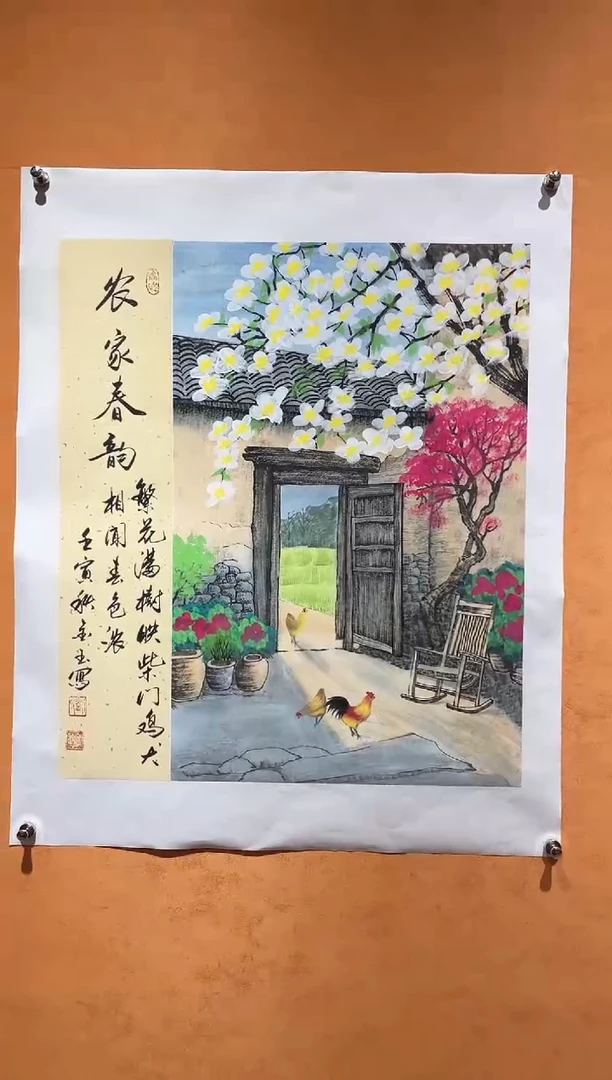 农家春韵
繁花满樹映柴门鸡犬
相闻春色浓
壬寅秋金玉寫